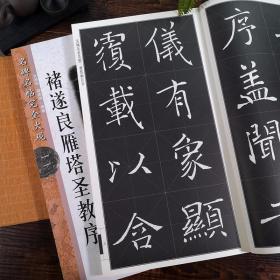 名碑名帖完全大观
褚遂良雁塔圣教序
序盖聞二
儀有象顯
覆載以含